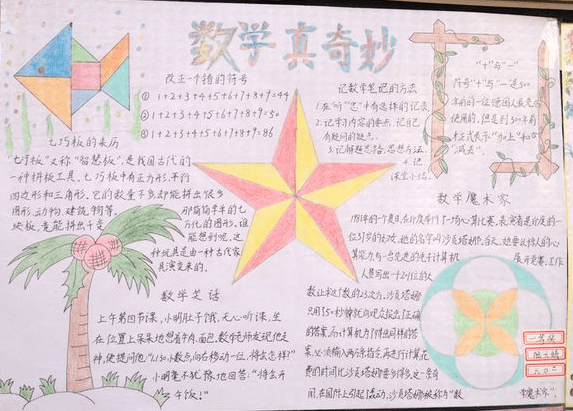 数学真奇妙
改正一个错的符号
① 1+2+3+4+5+6+7+8+9=44
② 1+2+3+4+5+6+7+8+9=30
③ 1+2+3+4+5+6+7+8+9=86
七巧板的来历
七巧板又称"智慧板",是我国古代的
一种拼板工具。七巧板中有正方形,平行
四边形和三角形。它的数量不多却能拼出很多
图形,动物,建筑,物等。
块板,竟能拼出千变
那简简单单的七
万化的图形。谁
能想到呢,这
种玩具是由一种古代家
具演变来的。
记数学笔记的方法
1.在"书""笔"中有这样的记录
2.记学习内容的要点,记自己
有疑问的疑点。
3.记解题思路、思想方法。
4.记
课堂小结。
"十"与"一"
符号"+"与"-"是
年前的一位德国人最先
使用的,但是到500年前
才正式表示"加上"和
"减去"。
数学魔术家
1981年的一个夏日,在印度举行了一场心算比赛。表演者是印度的一
位37岁的妇女,她的名字叫沙贡塔娜。当天,她要以惊人的心
算能力,与一台先进的电子计算机
展开竞赛。工作
人员写出一个201位的大
数,让求这个数的23次方。沙贡塔娜
只用50秒钟就向观众报出了正确
的答案。而计算机为了得出同样的答
案,必须输入两万条指令,再进行计算,花
费的时间比沙贡塔娜要多得多。这一奇
闻,在国际上引起了轰动,沙贡塔娜被称为"数
学魔术家"。
数学笑话
上午第四节课,小明肚子饿,无心听课,坐
在位置上呆呆地想着牛肉、面包,数学老师发现他走
神,便提问他:"1.130小数点向右移动一位,将会怎样?"
小明毫不犹豫地回答:"将会开
午饭!"